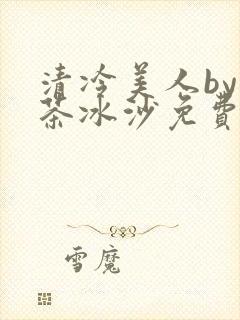 清冷美人by
茶冰沙免費
雪魔